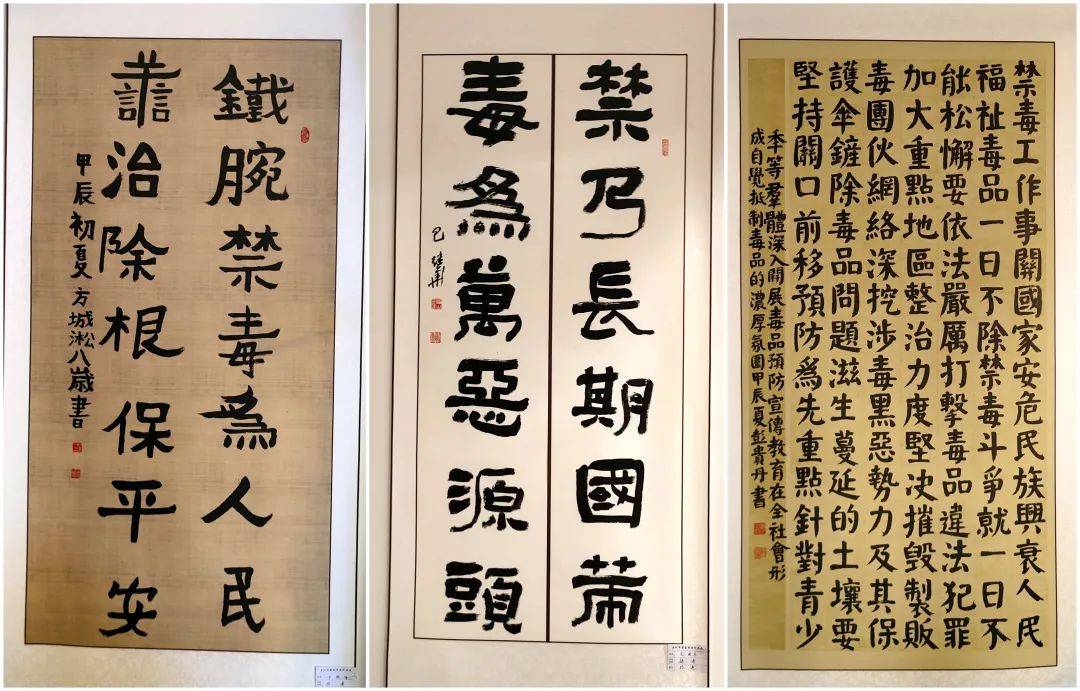 鐵腕禁毒爲人民
譱治除根保平安
甲辰初夏方城淞八歲書
禁乃長期國策
毒爲萬惡源頭
禁毒工作事關國家安危民族興衰人民
福祉毒品一日不除禁毒斗爭就一日不
能松懈要依法嚴厲打擊毒品違法犯罪
加大重點地區整治力度堅决摧毀製販
毒團伙網絡深挖涉毒黑惡勢力及其保
護傘鏟除毒品問題滋生蔓延的土壤要
堅持關口前移預防爲先重點針對青少
年等羣體深入開展毒品預防宣傳教育在全社會形
成自覺抵制毒品的濃厚氛圍甲辰夏彭贵丹書